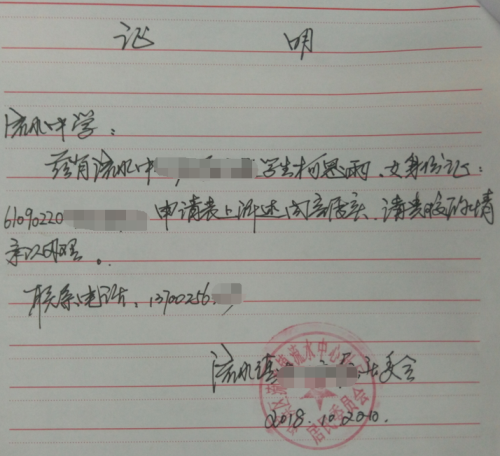 证 明
流水中学：
兹有流水中 学生柯思雨、女身份证：
61090220 申请表上所述内容属实、请贵校酌情
亲以明理。
联系电话、13700256
流水镇 社委会
2018.10.20
流水中心 居民委员会